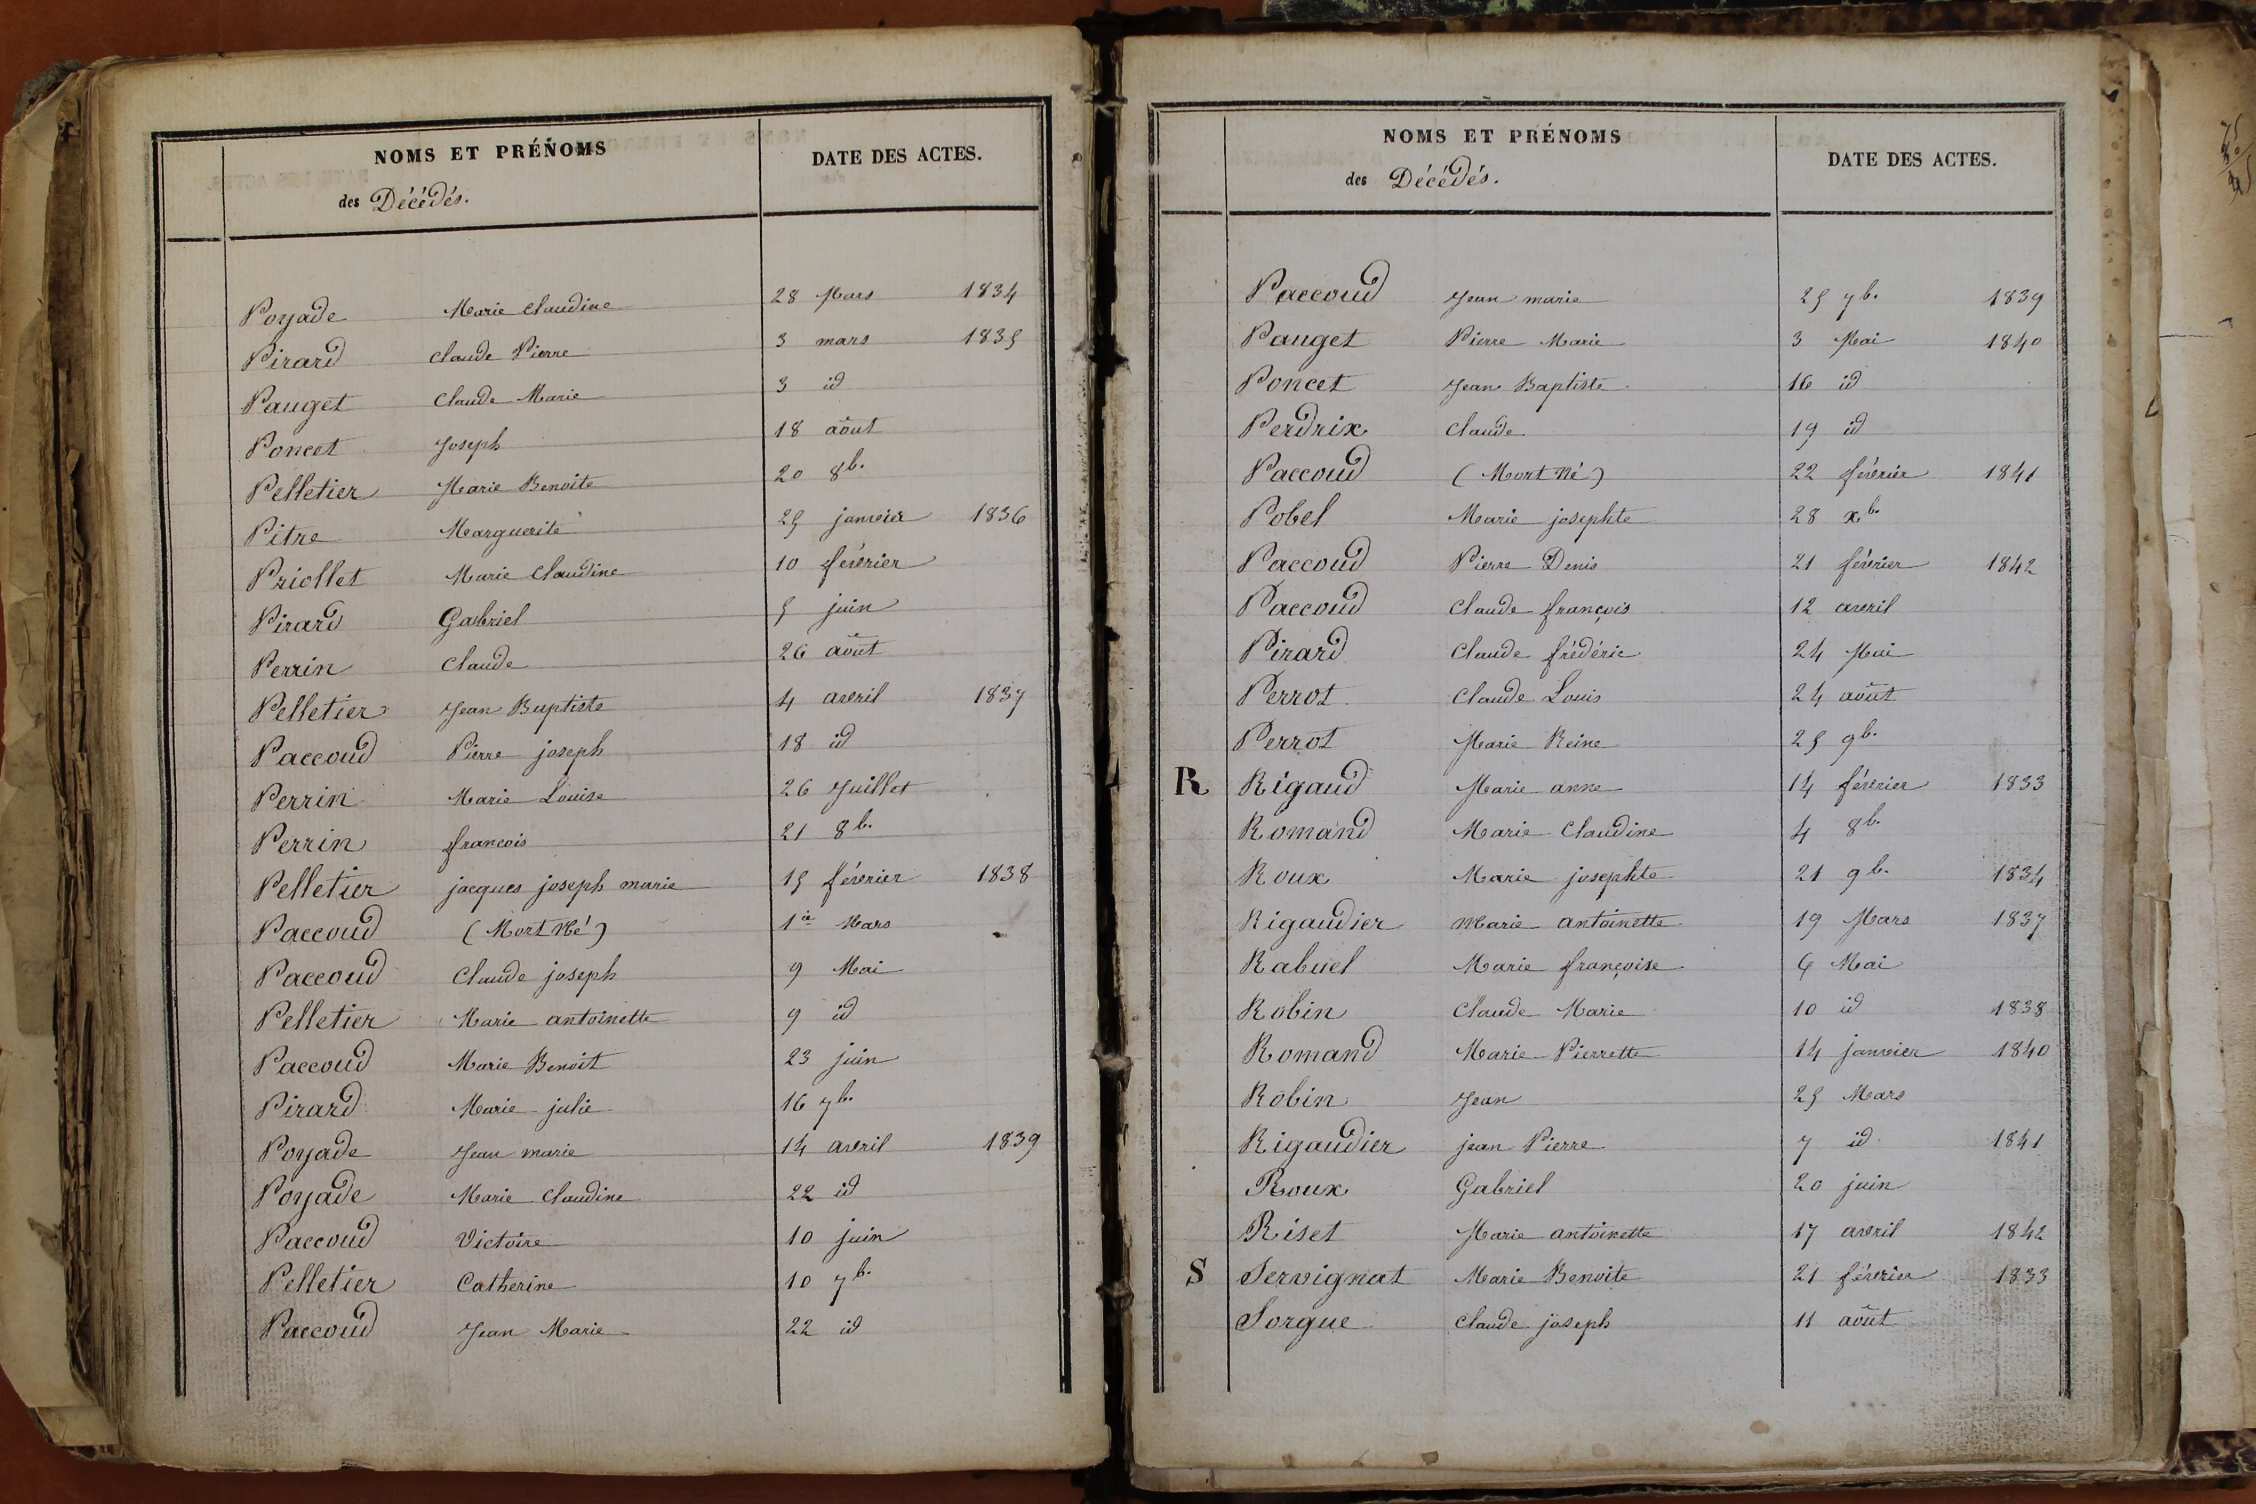 NOMS ET PRÉNOMS
DATE DES ACTES.
des Décédés.
Poyade Marie Claudine 28 Mars 1834
Pirard Claude Pierre 3 mars 1835
Pauget Claude Marie 3 id
Poncet Joseph 18 août
Pelletier Marie Benoite 20 8b.
Pitre Marguerite 25 janvier 1836
Priollet Marie Claudine 10 février
Pirard Gabriel 5 juin
Perrin Claude 26 août
Pelletier Jean Baptiste 4 avril 1837
Paccoud Pierre joseph 18 id
Perrin Marie Louise 26 Juillet
Perrin francois 21 8b.
Pelletier jacques joseph marie 15 février 1838
Paccoud (Mort Né) 1er Mars
Paccoud Claude joseph 9 Mai
Pelletier Marie antoinette 9 id
Paccoud Marie Benoit 23 juin
Pirard Marie julie 16 7b.
Poyade Jean marie 14 avril 1839
Poyade Marie Claudine 22 id
Paccoud Victoire 10 juin
Pelletier Catherine 10 7b.
Paccoud Jean Marie 22 id
NOMS ET PRÉNOMS
DATE DES ACTES.
des Décédés.
Paccoud Jean marie 25 7b. 1839
Pauget Pierre Marie 3 Mai 1840
Poncet Jean Baptiste 16 id
Perdrix Claude 19 id
Paccoud (Mort Né) 22 février 1841
Pobel Marie josephte 28 xb.
Paccoud Pierre Denis 21 février 1842
Paccoud Claude françois 12 avril
Pirard Claude frédéric 24 Mai
Perrot Claude Louis 24 août
Perrot Marie Reine 25 9b.
R Rigaud Marie anne 14 février 1833
Romand Marie Claudine 4 8b.
Roux Marie josephte 21 9b. 1834
Rigaudier Marie antoinette 19 Mars 1837
Rabuel Marie françoise 6 Mai
Robin Claude Marie 10 id 1838
Romand Marie Pierrette 14 janvier 1840
Robin Jean 25 Mars
Rigaudier jean Pierre 7 id 1841
Roux Gabriel 20 juin
Riset Marie antoinette 17 avril 1842
S Servignat Marie Benoite 21 février 1833
Sorgue Claude joseph 11 août